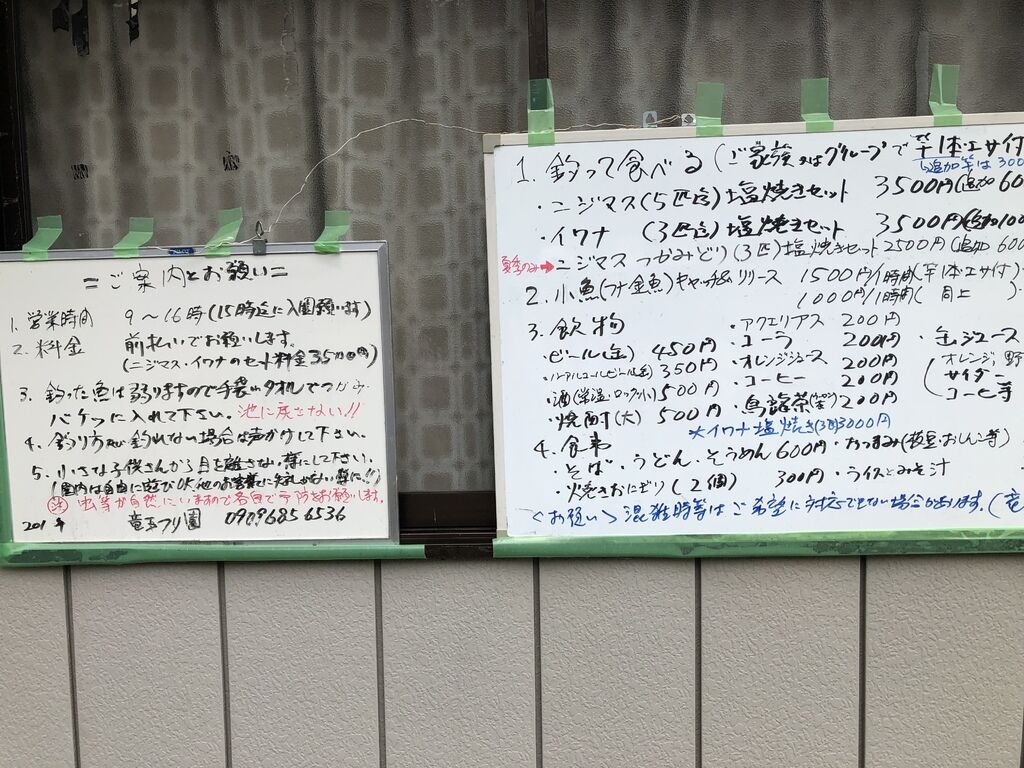 =ご案内とお願い=
1. 営業時間 9〜16時(15時迄に入園願います)
2. 料金 前払いでお願いします。
(ニジマス・イワナのセット料金3500円)
3. 釣った魚は弱りますので手袋かタオルでつかみ
バケツに入れて下さい。池に戻さない!!
4. 釣り方が釣れない場合は声かけして下さい。
5. 小さな子供さんから目を離さない様にして下さい。
(園内は自由に遊びOK 他のお客様に
虫等が自然にいますので各自で予防をお願いします。
201 年 竜王フリ園 09096856536
1. 釣って食べる(ご家族又はグループで 竿1本・エサ付
追加竿は300
・ニジマス(5匹迄)塩焼きセット 3500円(追加60
・イワナ (3匹迄)塩焼きセット 3500円(追加100
夏季のみ→ニジマスつかみどり(3匹)塩焼きセット2500円(追加600
2. 小魚(フナ・金魚)キャッチ&リリース 1500円/1時間(竿1本・エサ付)
1000円/1時間( 同上 )
3. 飲物
・ビール(缶) 450円
・ノンアルコールビール(缶) 350円
・酒(常温・ロック小) 500円
・焼酎(大) 500円
・アクエリアス 200円
・コーラ 200円
・オレンジジュース 200円
・コーヒー 200円
・烏龍茶 200円
・缶ジュース
(オレンジ、野
サイダー
コーヒー等
*イワナ塩焼き(3匹)3000円
4. 食事
・そば・うどん・そうめん 600円・おつまみ(枝豆・おしんこ等)
・焼きおにぎり(2個) 300円・ライスとみそ汁
<お願い>混雑時等はご希望に対応できない場合があります。(竜